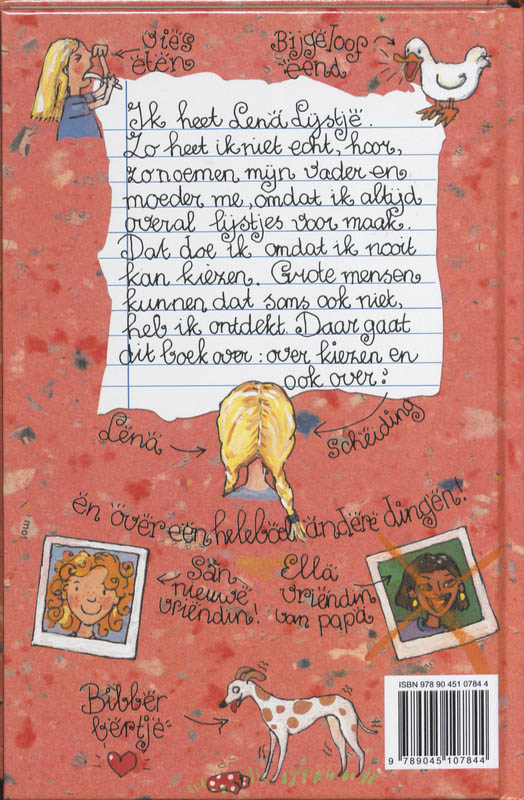 vies
eten
Bijgeloof
eend
Ik heet Lena Lijstje.
Zo heet ik niet echt, hoor,
zo noemen mijn vader en
moeder me, omdat ik altijd
overal lijstjes voor maak.
Dat doe ik omdat ik nooit
kan kiezen. Grote mensen
kunnen dat soms ook niet,
heb ik ontdekt. Daar gaat
dit boek over: over kiezen en
ook over:
Lena
scheiding
en over een heleboel andere dingen!
San
nieuwe
vriendin!
Ella
vriendin
van papa
Bibber
bertje
ISBN 978 90 451 0784 4
9 789045 107844